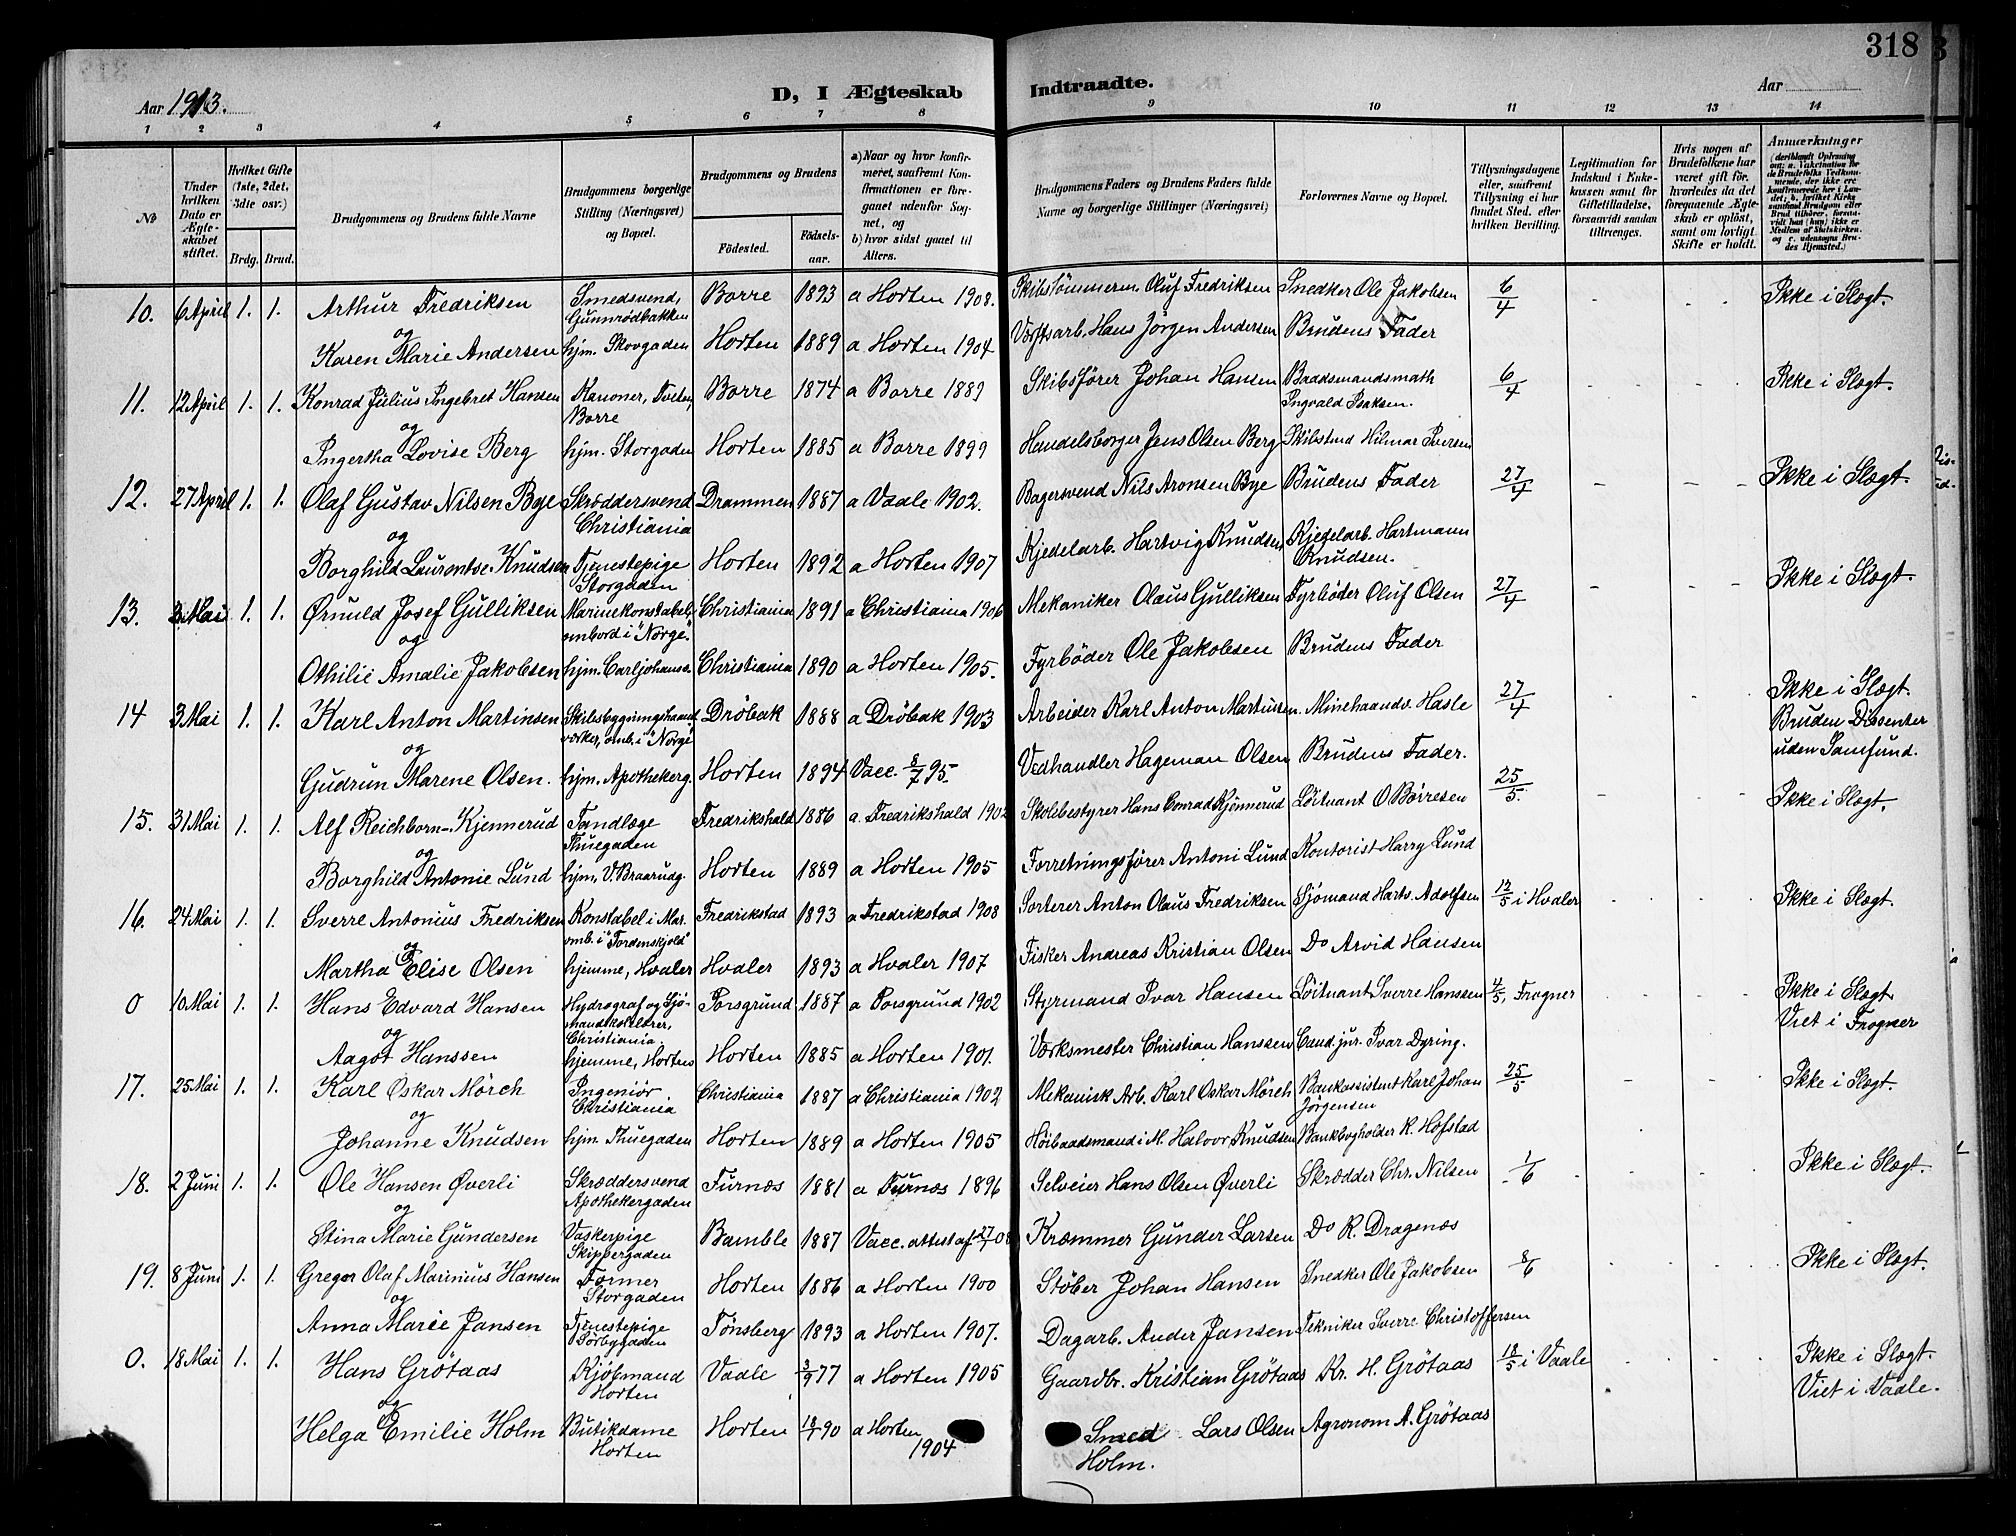 318
Aar 1913. D, I Ægteskab Indtraadte. Aar
1 2 3 4 5 6 7 8 9 10 11 12 13 14
No
Under hvilken Dato er Ægteskabet stiftet.
Hvilket Gifte (1ste, 2det, 3die osv.)
Brdg. Brud.
Brudgommens og Brudens fulde Navne
Brudgommens borgerlige Stilling (Næringsvei) og Bopæl.
Brudgommens og Brudens
Födested. Födselsaar.
a) Naar og hvor konfirmeret, saafremt Konfirmationen er foregaaet udenfor Sognet, og
b) hvor sidst gaaet til Alters.
Brudgommens Faders og Brudens Faders fulde Navne og borgerlige Stillinger (Næringsvei)
Forlovernes Navne og Bopæl.
Tillysningsdagene eller, saafremt Tillysning ei har fundet Sted, efter hvilken Bevilling.
Legitimation for Indskud i Enkekassen samt for Giftetilladelse, forsaavidt saadan tiltrænges.
Hvis nogen af Brudefolkene har været gift før, hvorledes da det foregaaende Ægteskab er oplöst, samt om lovligt Skifte er holdt.
Anmærkninger
10. 6 April 1. 1. Arthur Fredriksen Smedsvend, Gunnrödbakken Borre 1893 a Horten 1908. Skibstömmerm. Oluf Fredriksen Snedker Ole Jakobsen 6/4 Ikke i Slægt.
og
Karen Marie Andersen hjm. Skovgaden Horten 1889 a Horten 1904 Værftsarb. Hans Jörgen Andersen Brudens Fader
11. 12 April 1. 1. Konrad Julius Ingebret Hansen Kanoner, Tveten, Borre Borre 1874 a Borre 1889 Skibsförer Johan Hansen Baadsmandsmath Ingvald Isaksen. 6/4 Ikke i Slægt.
og
Ingertha Lovise Berg hjm. Storgaden Horten 1885 a Borre 1899 Handelsborger Jens Olsen Berg Skibstmd Hilmar Iversen
12. 27 April 1. 1. Olaf Gustav Nilsen Bye Skræddersvend Christiania Drammen 1887 a Vaale 1902. Bagersvend Nils Aronsen Bye Brudens Fader 27/4 Ikke i Slægt.
og
Borghild Laurentse Knudsen Tjenestepige Storgaden Horten 1892 a Horten 1907 Kjedelarb. Hartvig Knudsen Kjedelarb. Hartmann Knudsen.
13. 3 Mai 1. 1. Ørnuld Josef Gulliksen Marinekonstabel ombord i "Norge". Christiania 1891 a Christiania 1906 Mekaniker Olaus Gulliksen Fyrböder Oluf Olsen 27/4 Ikke i Slægt.
og
Othilie Amalie Jakobsen hjm. Carljohans. Christiania 1890 a Horten 1905. Fyrböder Ole Jakobsen Brudens Fader
14 3 Mai 1. 1. Karl Anton Martinsen Skibsbygningshaandværker, omb. i "Norge" Dröbak 1888 a Dröbak 1903 Arbeider Karl Anton Martinsen. Minehaandv. Hasle 27/4 Ikke i Slægt. Bruden Dissenter uden Samfund.
og
Gudrun Marene Olsen. hjm. Apothekerg. Horten 1894 Vacc. 8/7 95. Vedhandler Hageman Olsen Brudens Fader.
15. 31 Mai 1. 1. Alf Reichborn-Kjennerud Tandlæge Thuegaden Fredrikshald 1886 a. Fredrikshald 1902 Skolebestyrer Hans Conrad Kjennerud Löitnant O Börresen 25/5. Ikke i Slægt.
og
Borghild Antonie Lund hjm. V. Braarudg. Horten 1889 a Horten 1905 Forretningsförer Antoni Lund Kontorist Harry Lund
16. 24 Mai 1. 1. Sverre Antonius Fredriksen Konstabel i Mar. omb. i "Tordenskjold" Fredrikstad 1893 a Fredrikstad 1908 Sorterer Anton Olaus Fredriksen Sjömand Hartv. Adolfsen 12/5 i Hvaler Ikke i Slægt.
og
Martha Elise Olsen hjemme, Hvaler Hvaler 1893 a Hvaler 1907 Fisker Andreas Kristian Olsen Do Arvid Hansen
0 10 Mai 1. 1. Hans Edvard Hansen Hydrograf og Sjömandskolelærer, Christiania. Porsgrund 1887 a Porsgrund 1902 Styrmand Ivar Hansen Löitnant Sverre Hanssen 4/5, Frogner Ikke i Slægt Viet i Frogner
og
Aagot Hanssen hjemme, Horten Horten 1885 a Horten 1901. Værksmester Christian Hanssen Cand. jur. Ivar Dyring.
17. 25 Mai 1. 1. Karl Oskar Mörch Ingeniör Christiania. Christiania 1887 a Christiania 1902 Mekanisk Arb. Karl Oskar Mörch Bankassistent Karl Johan Jörgensen 25/5 Ikke i Slægt.
og
Johanne Knudsen hjm. Thuegaden Horten 1889 a Horten 1905 Höibaadsmand i M. Halvor Knudsen Bankbogholder K. Hofstad
18. 2 Juni 1. 1. Ole Hansen Øverli Skræddersvend Apothekergaden Furnæs 1881 a Furnæs 1896 Selveier Hans Olsen Øverli Skrædder Chr. Nilsen 1/6 Ikke i Slægt.
og
Stina Marie Gundersen Vaskerpige Skippergaden Bamble 1887 Vacc. attest af 27/7 08 Kræmmer Gunder Larsen Do K. Dragenæs
19. 8 Juni 1. 1. Gregor Olaf Marinius Hansen Former Storgaden Horten 1886 a Horten 1900 Stöber Johan Hansen Snedker Ole Jakobsen 8/6 Ikke i Slægt.
og
Anna Marie Jansen Tjenestepige Sörbygaden Tönsberg 1893 a Horten 1907. Dagarb. Ander Jansen Tekniker Sverre Christoffersen
0. 18 Mai 1. 1. Hans Grötaas Kjöbmand Horten Vaale 3/9 77 a Horten 1905 Gaardbr. Kristian Grötaas Kr. H. Grötaas 18/5 i Vaale Ikke i Slægt. Viet i Vaale.
og
Helga Emilie Holm Butikdame Horten Horten 18/7 90 a Horten 1904 Smed Lars Olsen Holm. Agronom A. Grötaas